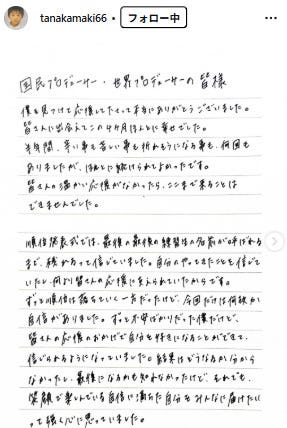 tanakamaki66 · フォロー中
国民プロデューサー・世界プロデューサーの皆様
僕を見つけて応援してくださって本当にありがとうございました。
皆さんに出会えてこの4ヶ月ほんとに幸せでした。
半年間、辛い事も苦しい事も折れそうになる事も、何回も
ありましたが、ほんとに続けられてよかったです。
皆さんの温かい応援がなかったら、ここまで来ることは
できませんでした。
順位発表式では、最後の最後の練習生の名前が呼ばれる
まで、残があって信じていました。自分のやってきたことを信じて
いたし、何より皆さんの応援に支えられていたからです。
ずっと順位は落ちていく一方だったけど、今回だけは何故か
自信がありました。ずっと不安ばかりだった僕だけど、
皆さんの応援のおかげで自分を好きになることができて、
信じられるようになっていました。結果はどうなるか分から
なかったし、最後になるかも知れなかったけど、それでも、
笑顔で楽しんでいる自信に満ちた自分をみんなに届けたい
って強く心に思っていました。